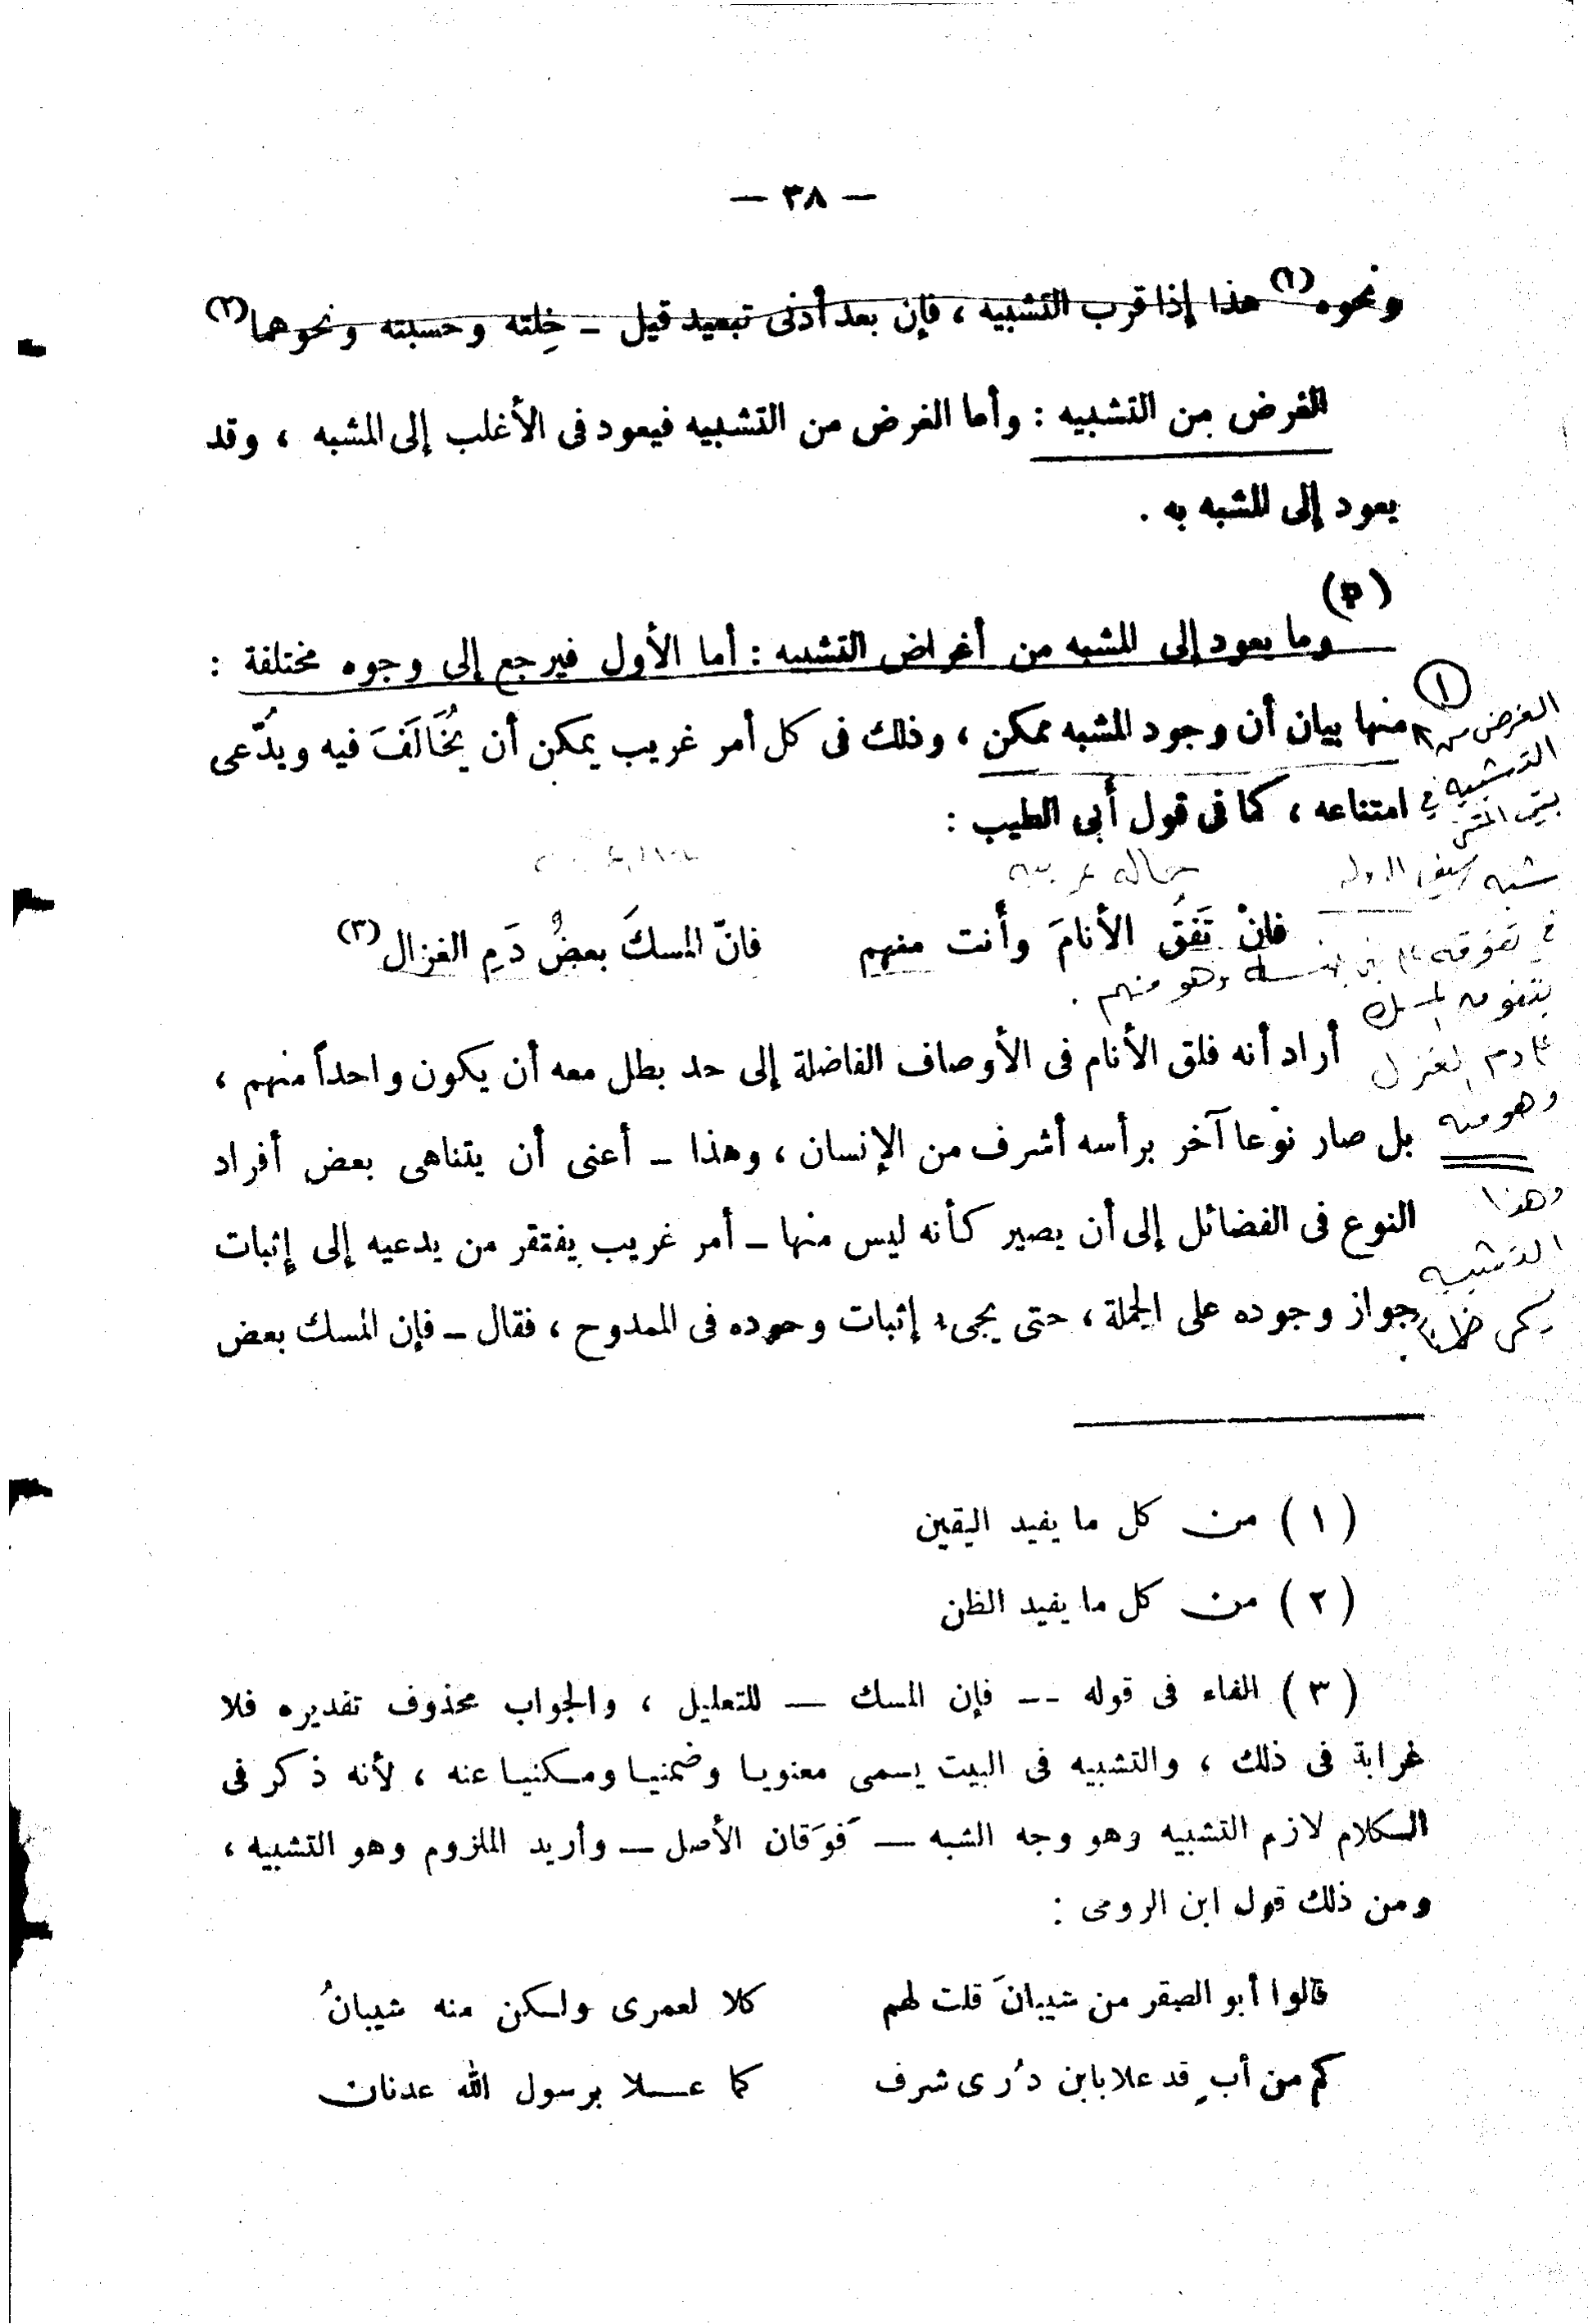 — ٣٨ —
ونحوه (١) هذا إذا قرب التشبيه ، فإن بعد أدنى تبعيد قيل — خِلته وحسبته ونحوهما (٢)
الغرض من التشبيه : وأما الغرض من التشبيه فيعود فى الأغلب إلى المشبه ، وقد
يعود إلى المشبه به .
وما يعود إلى المشبه من أغراض التشبيه : أما الأول فيرجع إلى وجوه مختلفة :
١
منها بيان أن وجود المشبه ممكن ، وذلك فى كل أمر غريب يمكن أن يُخَالَفَ فيه ويدَّعى
امتناعه ، كما فى قول أبى الطيب :
فانْ تَفُقِ الأنامَ وأنت منهم فانّ المسكَ بعضُ دَمِ الغزال (٣)
أراد أنه فلق الأنام فى الأوصاف الفاضلة إلى حد بطل معه أن يكون واحداً منهم ،
بل صار نوعا آخر برأسه أشرف من الإنسان ، وهذا — أعنى أن يتناهى بعض أفراد
النوع فى الفضائل إلى أن يصير كأنه ليس منها — أمر غريب يفتقر من يدعيه إلى إثبات
جواز وجوده على الجملة ، حتى يجىء إثبات وجوده فى الممدوح ، فقال — فإن المسك بعض
الغرض من
التشبيه في
بيت
شبه سيف الدولة
حالة غريبة
في تفوقه
وهو منهم .
بتفوق المسك
دم الغزال
وهو منه
وهذا
التشبيه
( ١ ) من كل ما يفيد اليقين
( ٢ ) من كل ما يفيد الظن
( ٣ ) الفاء فى قوله -- فإن المسك — للتعليل ، والجواب محذوف تقديره فلا
غرابة فى ذلك ، والتشبيه فى البيت يسمى معنويا وضمنيا ومكنيا عنه ، لأنه ذكر فى
الكلام لازم التشبيه وهو وجه الشبه — فَوَقان الأصل — وأريد الملزوم وهو التشبيه ،
ومن ذلك قول ابن الرومى :
قالوا أبو الصقر من شيبانَ قلت لهم كلا لعمرى ولكن منه شيبانُ
كم من أبٍ قد علا بابن ذُرى شرف كما عــلا برسول الله عدنان